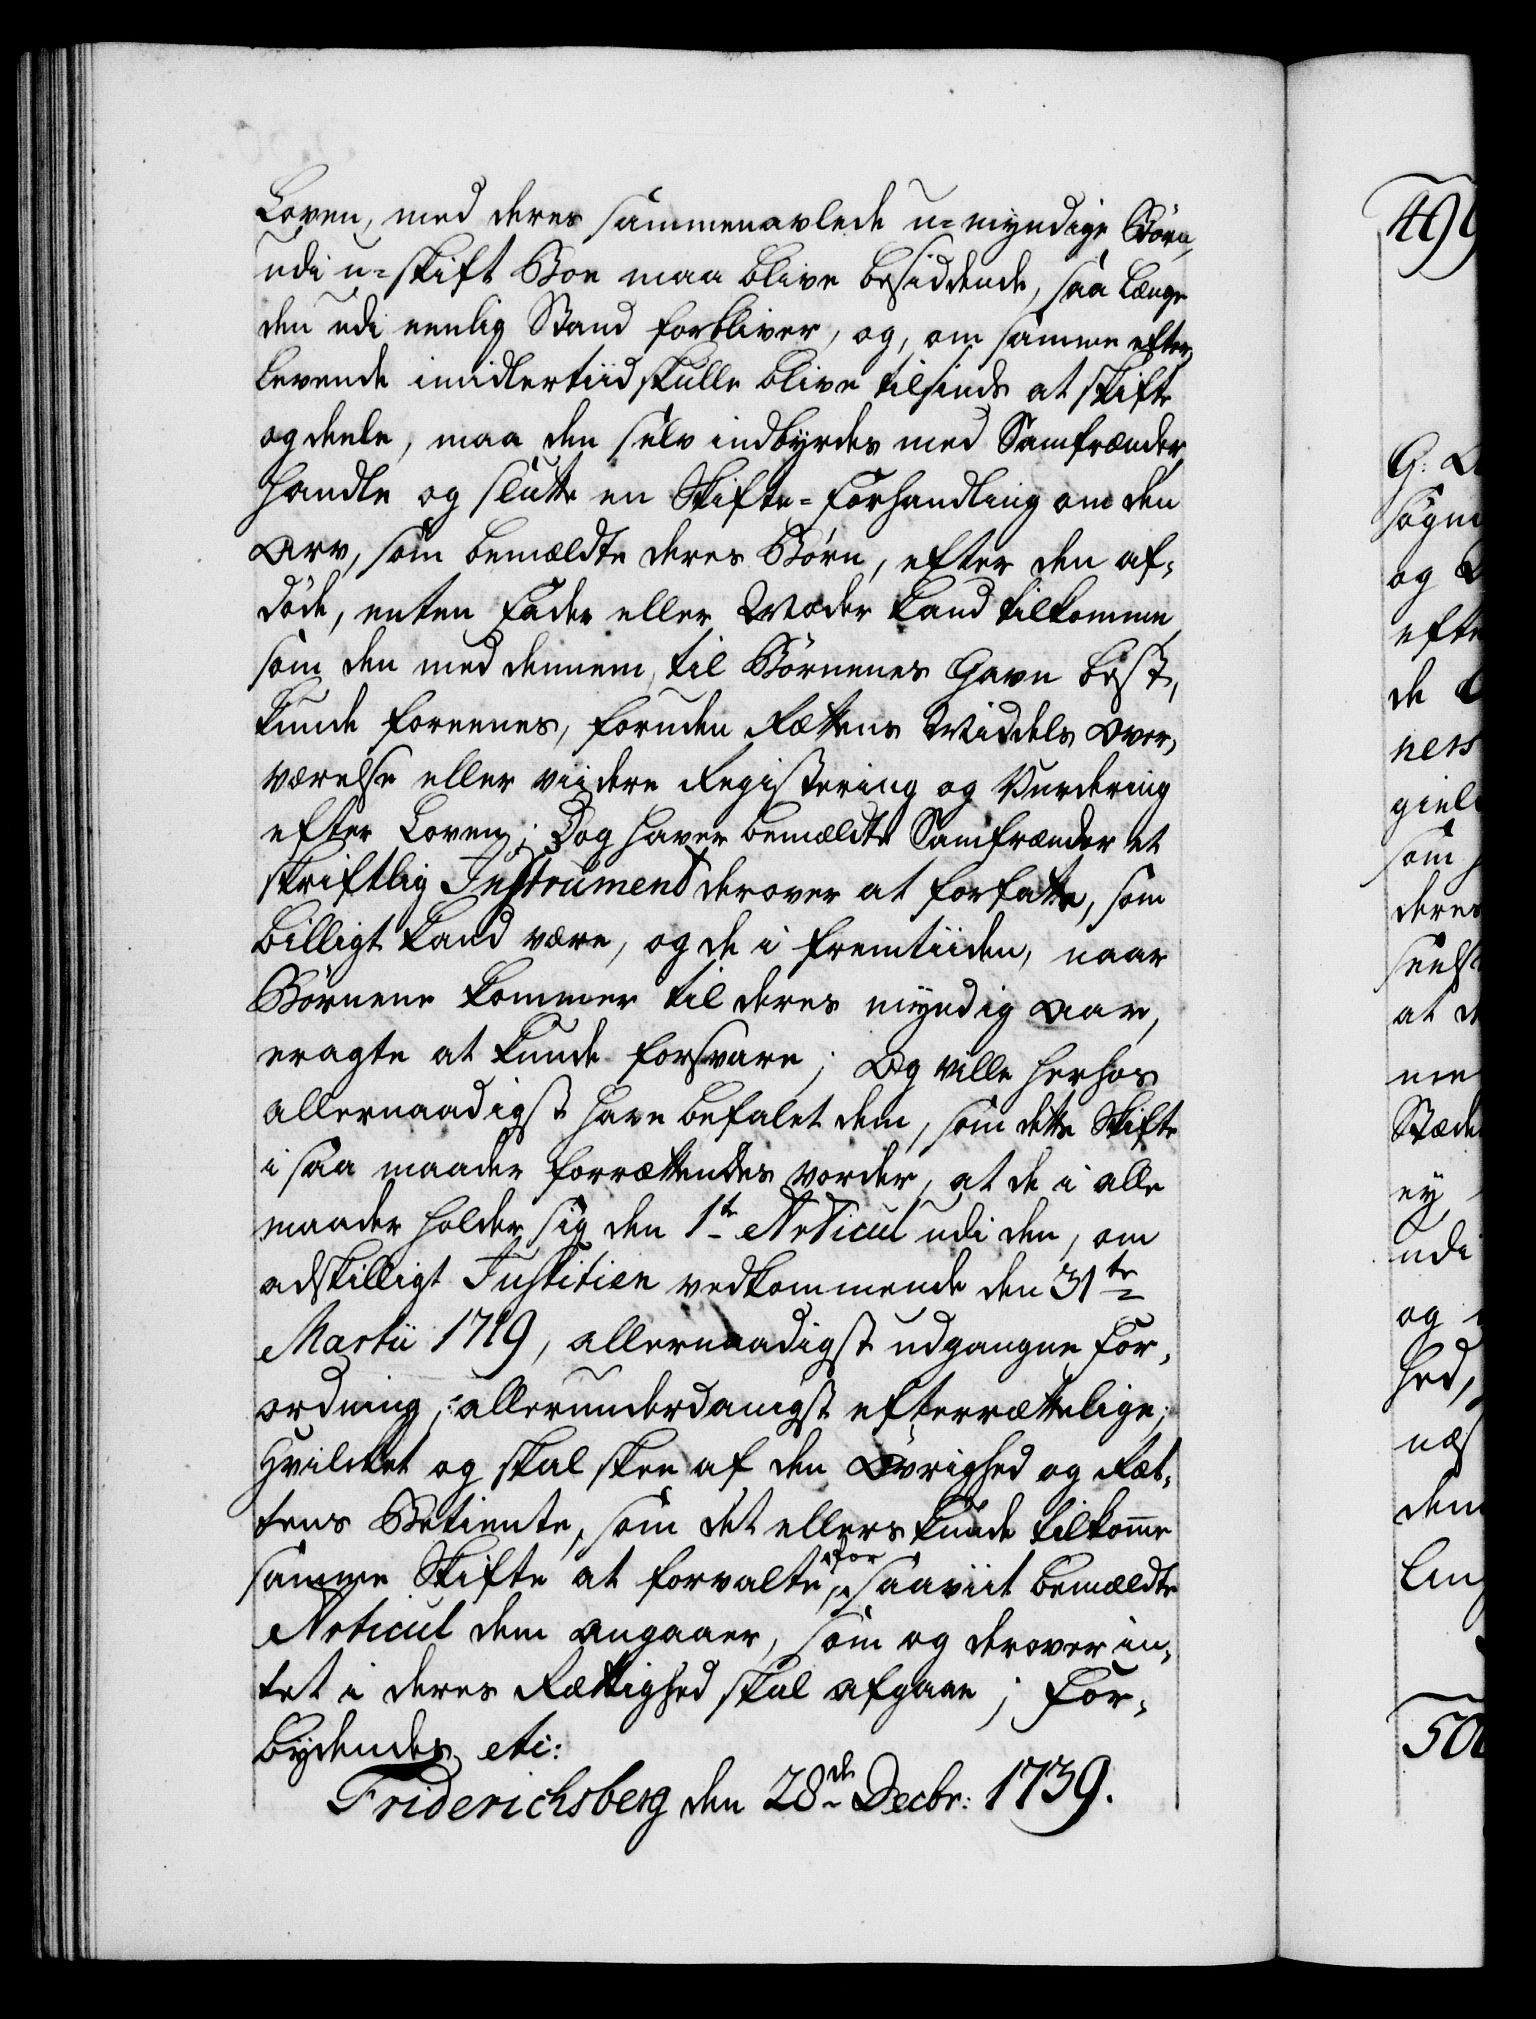 Loven, med deres sammenavlede u-myndige Børn,
udi u-skift Boe maa blive besiddende, saa længe
den udi eenlig Stand forbliver, og, om samme efter-
levende imidlertiid skulle blive tilsinds at skifte
og deele, maa den selv indbyrdes med Samfrænder,
handle og slutte en Skifte-Forhandling om den
Arv, som bemældte deres Børn, efter den af-
døde, enten Fader eller Moder kand tilkomme,
som den med dennem, til Børnenes Gavn best,
kunde foreenes, foruden Rættens Middels Over-
værelse eller viidere Registering og Vurdering
efter Loven; Dog haver bemældte Samfrænder et
skriftlig Instrument derover at forfatte, som
billigt kand være, og de i Fremtiiden, naar
Børnene kommer til deres myndig Aar,
eragte at kunde forsvare; Og ville herhos
allernaadigst have befalet dem, som dette Skifte
i saa maader forrættendes vorder, at de i alle
maader holder sig den 1te Articul udi den, om
adskilligt Justitien vedkommende den 31te
Martii 1719, allernaadigst udgangne For-
ordning, allerunderdanigst efterrættelige;
Hvilcket og skal skee af den Øvrighed og Ræt-
tens Betiente, som det ellers kunde tilkomme
samme Skifte at forvalte, for saaviit bemældte
Articul dem angaaer, som og derover in-
tet i deres Rættighed skal afgaae; For-
bydendes etc:
Friderichsberg den 28de Decbr: 1739.
499
G: A
søgn
og
efte
de
ners
giel
som
deres
seelse
at d
me
Stæde
ey
udi
og
hed,
næs
dem
Ling
500